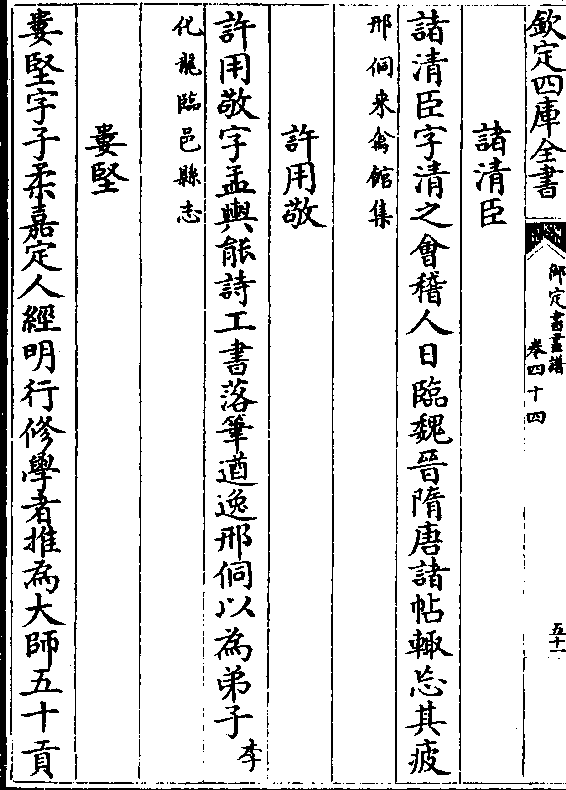 欽定四庫全書
御定書畫譜
卷四十四
五十一
諸清臣
諸清臣字清之會稽人日臨魏晉隋唐諸帖輙忘其疲
邢侗來禽館集
許用敬
許用敬字孟輿能詩工書落筆遒逸邢侗以為弟子李
化龍臨邑縣志
婁堅
婁堅字子柔嘉定人經明行修學者推為大師五十貢